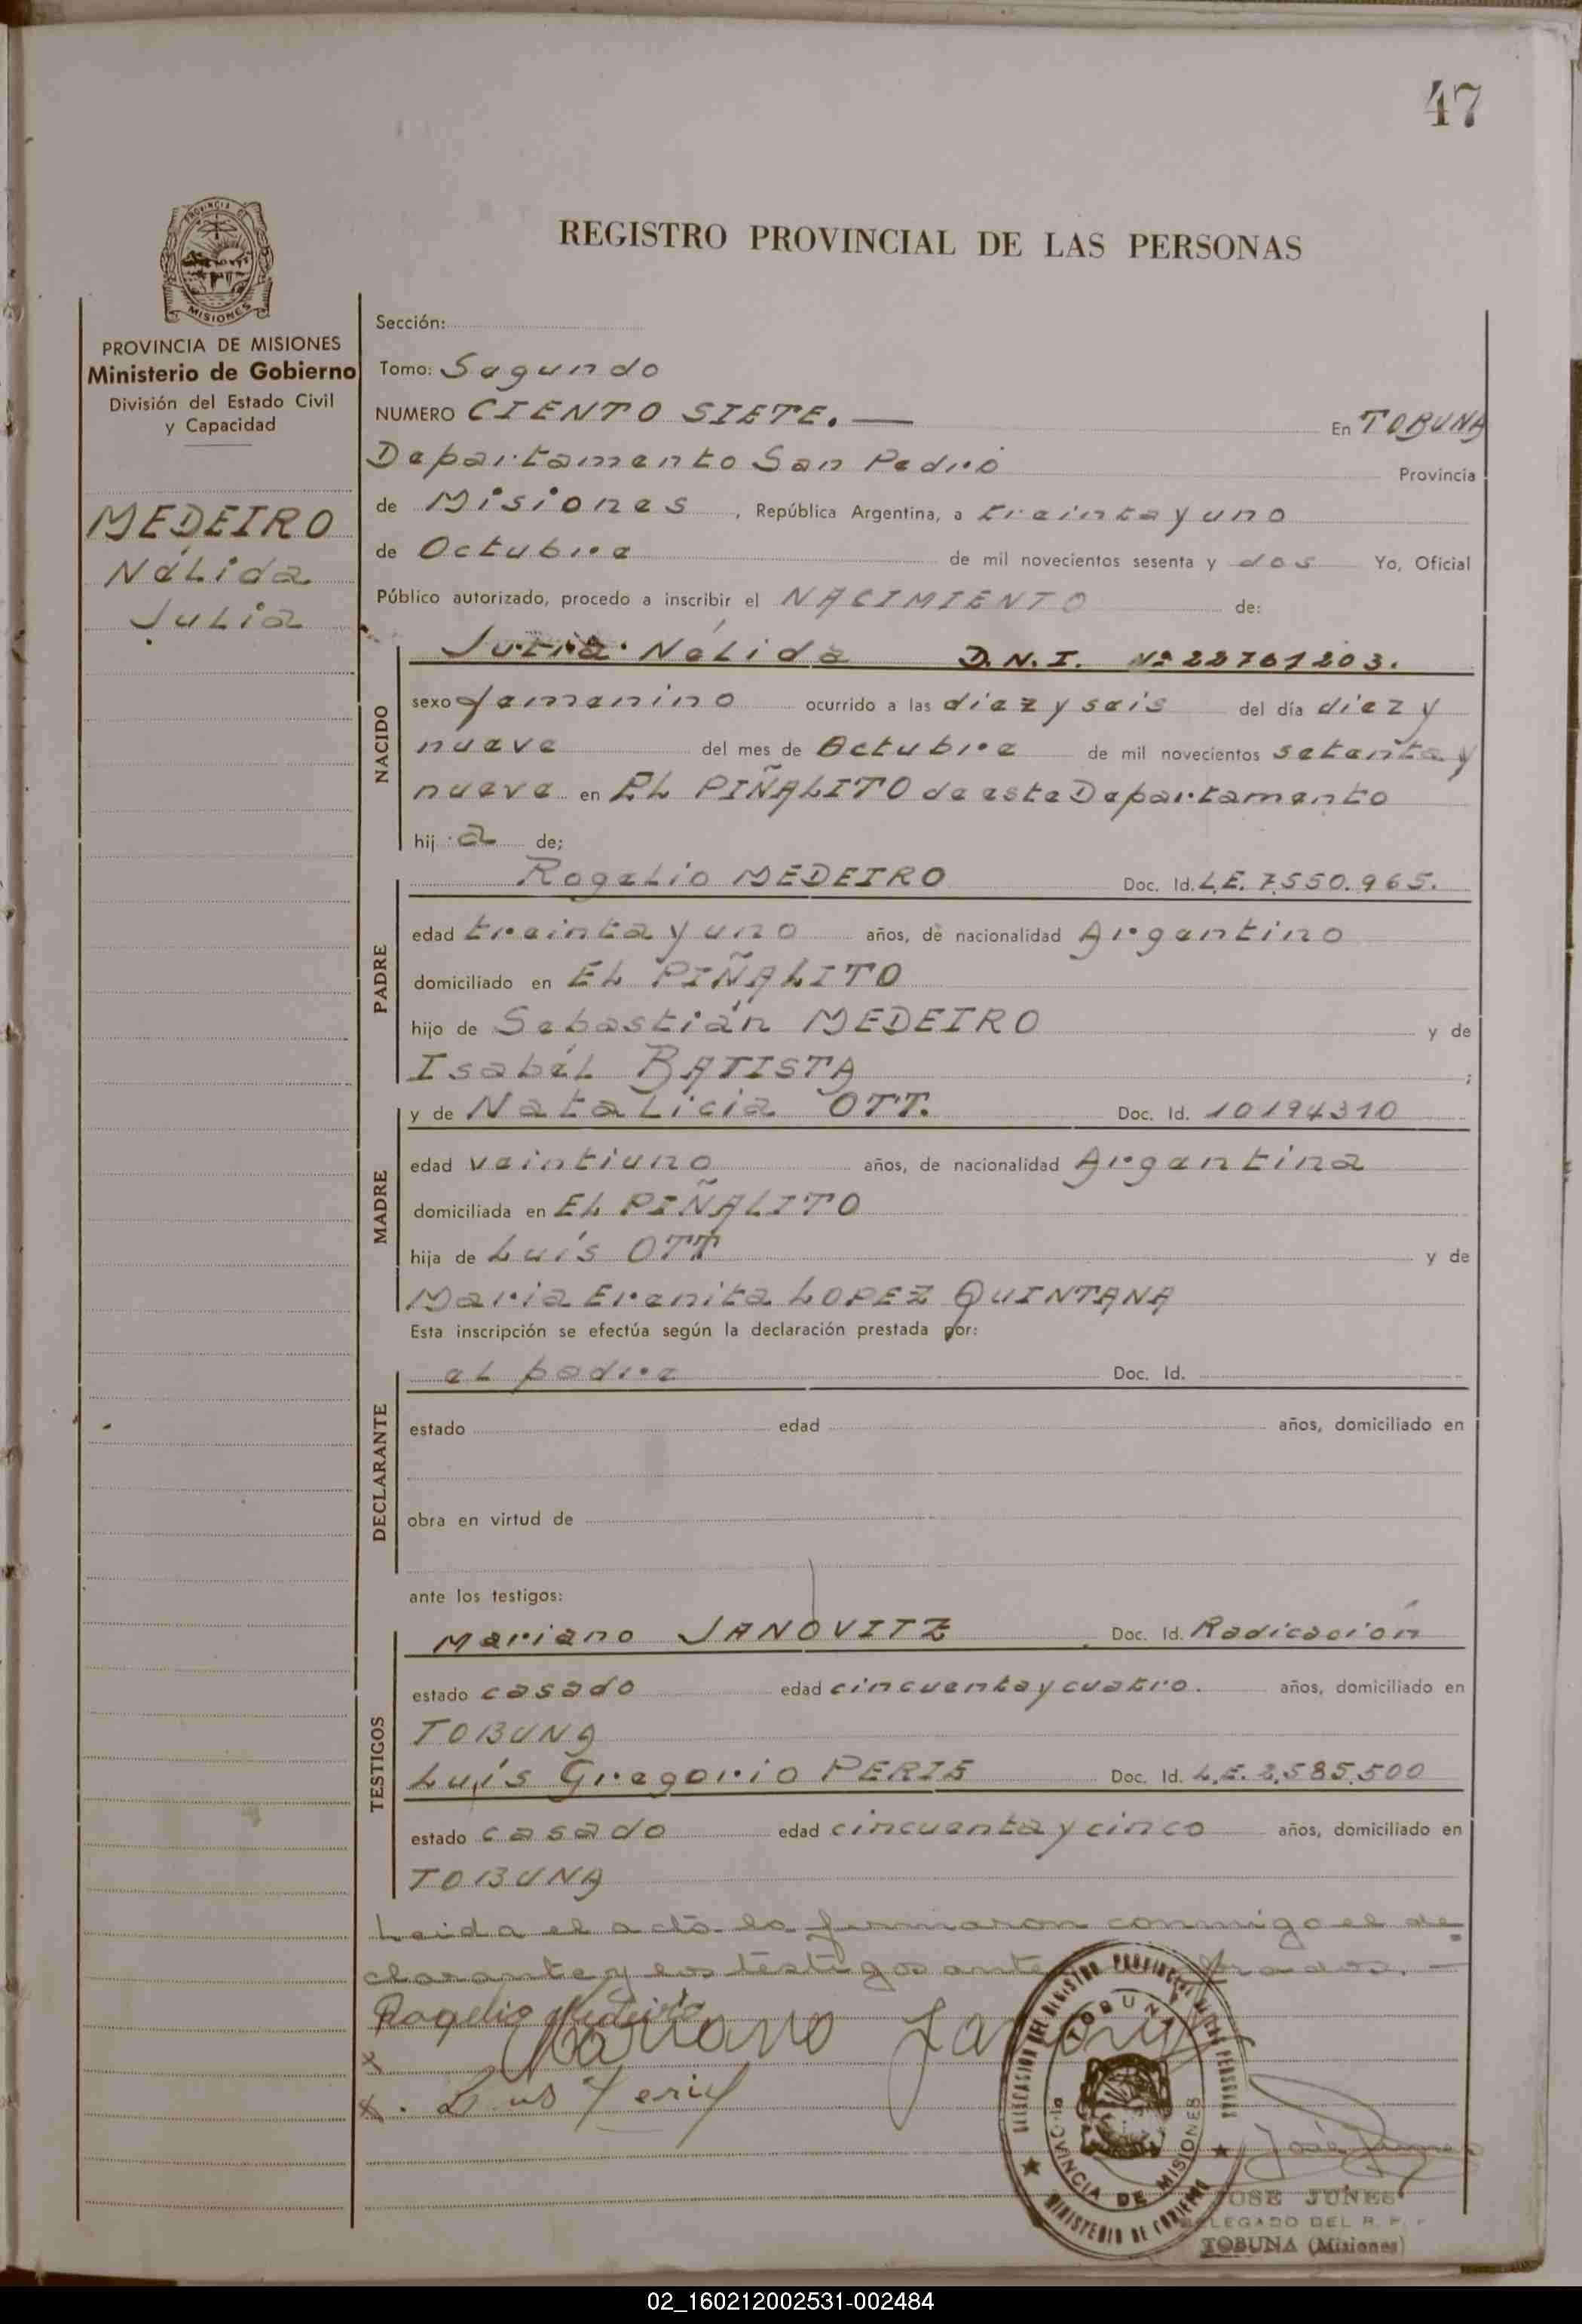 47
PROVINCIA DE
MISIONES
REGISTRO PROVINCIAL DE LAS PERSONAS
PROVINCIA DE MISIONES
Ministerio de Gobierno
División del Estado Civil
y Capacidad
MEDEIRO
Nélida
Julia
Sección:
Tomo: Segundo
NUMERO CIENTO SIETE. — En TOBUNA
Departamento San Pedro Provincia
de Misiones, República Argentina, a treinta y uno
de Octubre de mil novecientos sesenta y dos Yo, Oficial
Público autorizado, procedo a inscribir el NACIMIENTO de:
NACIDO
Julia Nélida D.N.I. Nº 28761203.
sexo femenino ocurrido a las diez y seis del día diez y
nueve del mes de Octubre de mil novecientos setenta y
nueve en EL PIÑALITO de este Departamento
hij a de;
PADRE
Rogelio MEDEIRO Doc. Id. L.E. 7.550.965.
edad treinta y uno años, de nacionalidad Argentino
domiciliado en EL PIÑALITO
hijo de Sebastián MEDEIRO y de
Isabél BATISTA ;
MADRE
y de Natalicia OTT. Doc. Id. 10194310
edad veintiuno años, de nacionalidad Argentina
domiciliada en EL PIÑALITO
hija de Luís OTT y de
Maria Erenita LOPEZ QUINTANA
Esta inscripción se efectúa según la declaración prestada por:
DECLARANTE
el padre Doc. Id.
estado edad años, domiciliado en
obra en virtud de
ante los testigos:
TESTIGOS
Mariano JANOVITZ Doc. Id. Radicación
estado casado edad cincuenta y cuatro. años, domiciliado en
TOBUNA
Luís Gregorio PERIE Doc. Id. L.E. 2.585.500
estado casado edad cincuenta y cinco años, domiciliado en
TOBUNA
Leida el acta la firmaron conmigo el de
clarante y los testigos ante
Rogelio Medeiro
Mariano
x
x.
DELEGACION DEL REGISTRO PROVINCIAL DE LAS PERSONAS
TOBUNA
PROVINCIA DE MISIONES
MINISTERIO DE GOBIERNO
JOSE JUNES
DELEGADO DEL R. P. P
TOBUNA (Misiones)
02_160212002531-002484